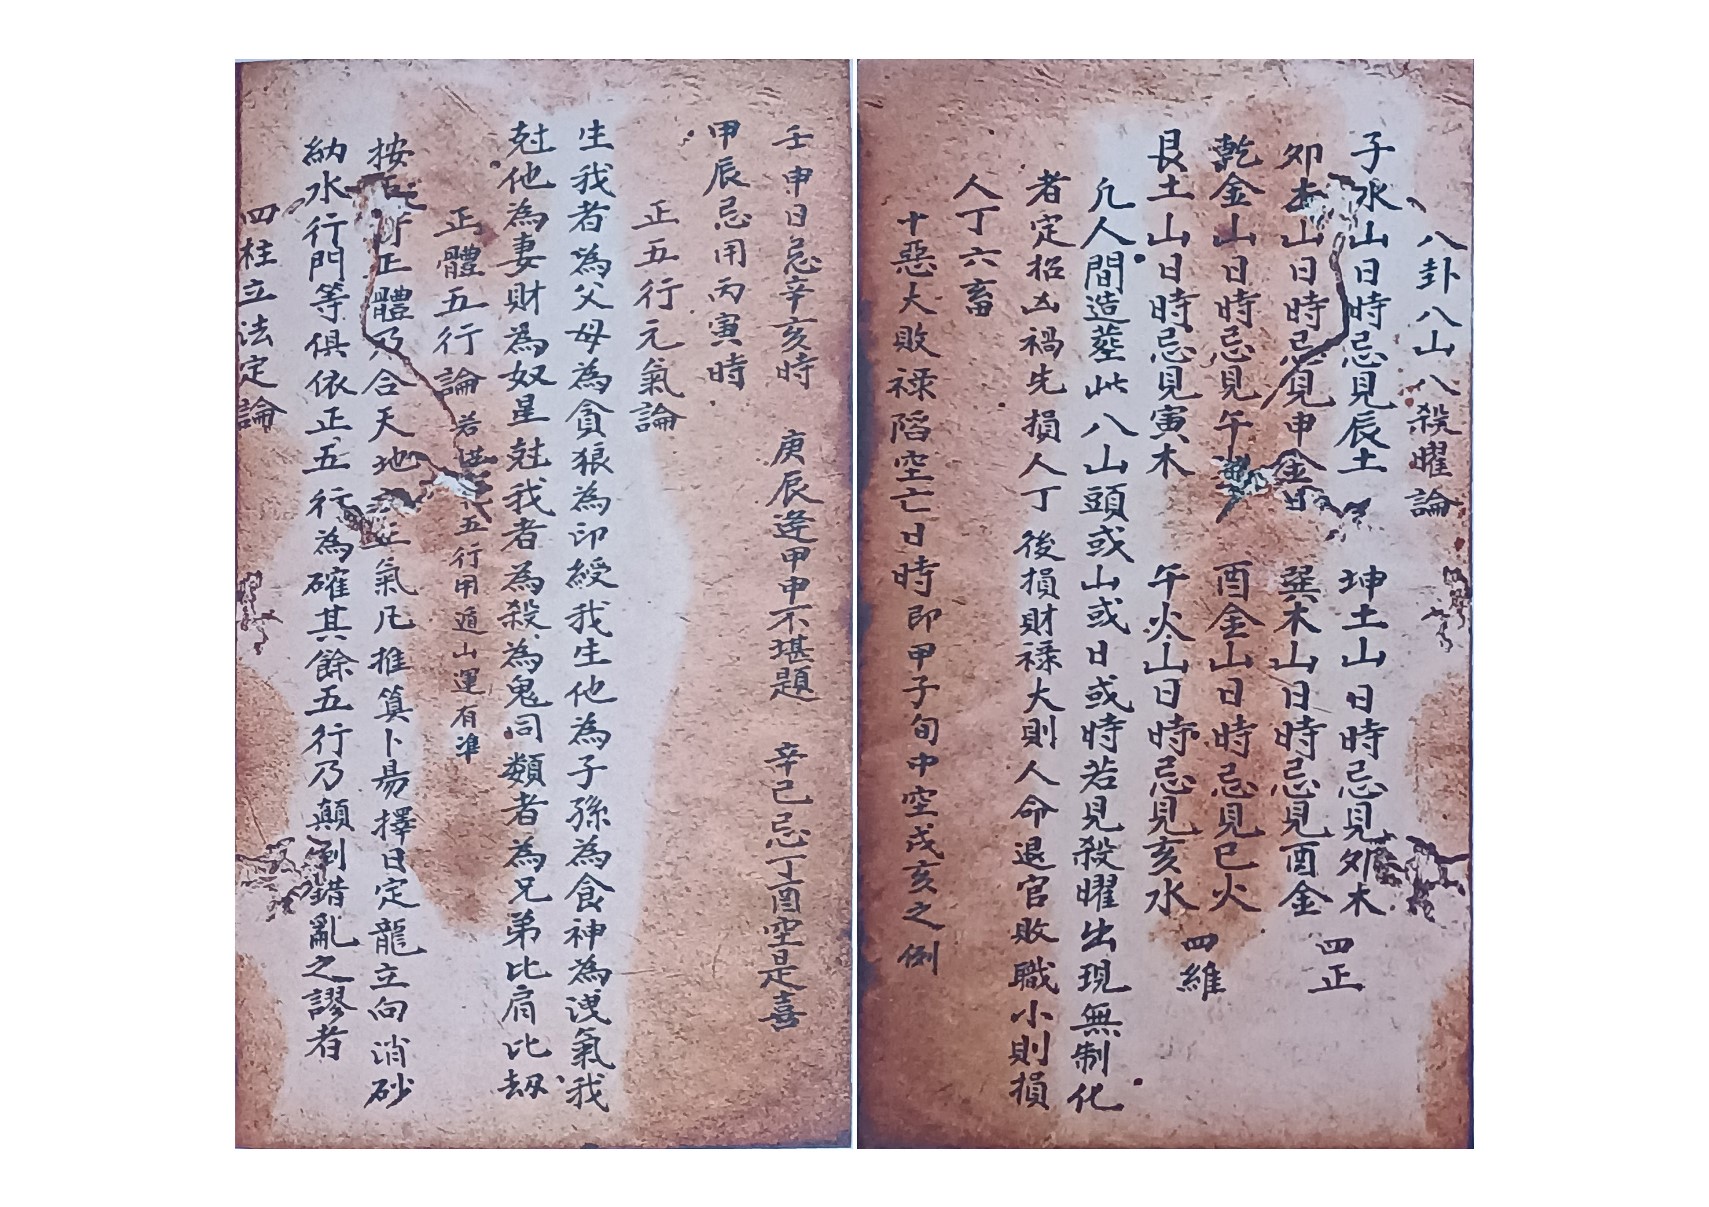 八卦八山八殺曜論
子水山日時忌見辰土 坤土山日時忌見夘木
夘木山日時忌見申金 巽木山日時忌見酉金 四正
乾金山日時忌見午 酉金山日時忌見巳火
艮土山日時忌見寅木 午火山日時忌見亥水 四維
凢人間造塟此八山頭或山或日或時若見殺曜出現無制化
者定招凶禍先損人丁後損財祿大則人命退官敗職小則損
人丁六畜
十惡大敗祿䧟空亡日時即甲子旬中空戌亥之例
壬申日忌辛亥時 庚辰逄甲申不堪題 辛巳忌丁酉空是喜
甲辰忌用丙寅時
正五行元氣論
生我者為父母為貪狼為印綬我生他為子孫為食神為洩氣我
尅他為妻財為奴星尅我者為殺為鬼司類者為兄弟比肩比刼
正體五行論 若洪五行用遁山運有準
按正體乃合天地正氣凢推算卜昜擇日定龍立向消砂
納水行門等俱依正五行為確其餘五行乃顛倒錯亂之謬者
四柱立法定論